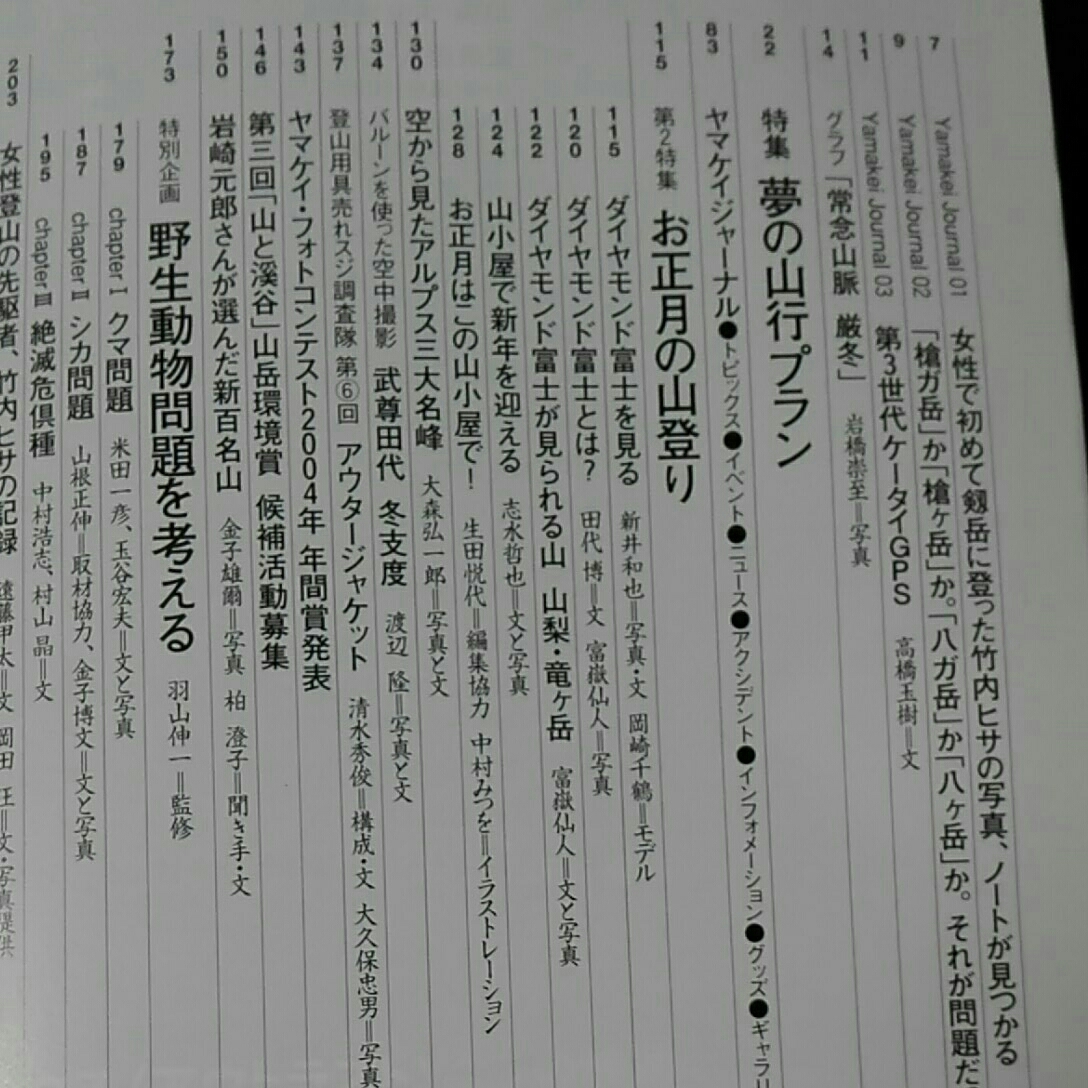 7 Yamakei Journal 01 女性で初めて剱岳に登った竹内ヒサの写真、ノートが見つかる
9 Yamakei Journal 02 「槍ガ岳」か「槍ヶ岳」か。「八ガ岳」か「八ヶ岳」か。それが問題だ
11 Yamakei Journal 03 第3世代ケータイGPS 高橋玉樹=文
14 グラフ「常念山脈 厳冬」 岩橋崇至=写真
22 特集 夢の山行プラン
83 ヤマケイジャーナル●トピックス●イベント●ニュース●アクシデント●インフォメーション●グッズ●ギャラリ
115 第2特集 お正月の山登り
115 ダイヤモンド富士を見る 新井和也=写真・文 岡崎千鶴=モデル
120 ダイヤモンド富士とは? 田代 博=文 富嶽仙人=写真
122 ダイヤモンド富士が見られる山 山梨・竜ヶ岳 富嶽仙人=文と写真
124 山小屋で新年を迎える 志水哲也=文と写真
128 お正月はこの山小屋で! 生田悦代=編集協力 中村みつを=イラストレーション
130 空から見たアルプス三大名峰 大森弘一郎=写真と文
134 バルーンを使った空中撮影 武尊田代 冬支度 渡辺 隆=写真と文
137 登山用具売れスジ調査隊 第⑥回 アウタージャケット 清水秀俊=構成・文 大久保忠男=写真
143 ヤマケイ・フォトコンテスト2004年 年間賞発表
146 第三回「山と溪谷」山岳環境賞 候補活動募集
150 岩崎元郎さんが選んだ新百名山 金子雄爾=写真 柏 澄子=聞き手・文
173 特別企画 野生動物問題を考える 羽山伸一=監修
179 chapter Ⅰ クマ問題 米田一彦、玉谷宏夫=文と写真
187 chapter Ⅱ シカ問題 山根正伸=取材協力、金子博文=文と写真
195 chapter Ⅲ 絶滅危倶種 中村浩志、村山 晶=文
203 女性登山の先駆者、竹内ヒサの記録 遠藤甲太=文 岡田 =文・写真提供